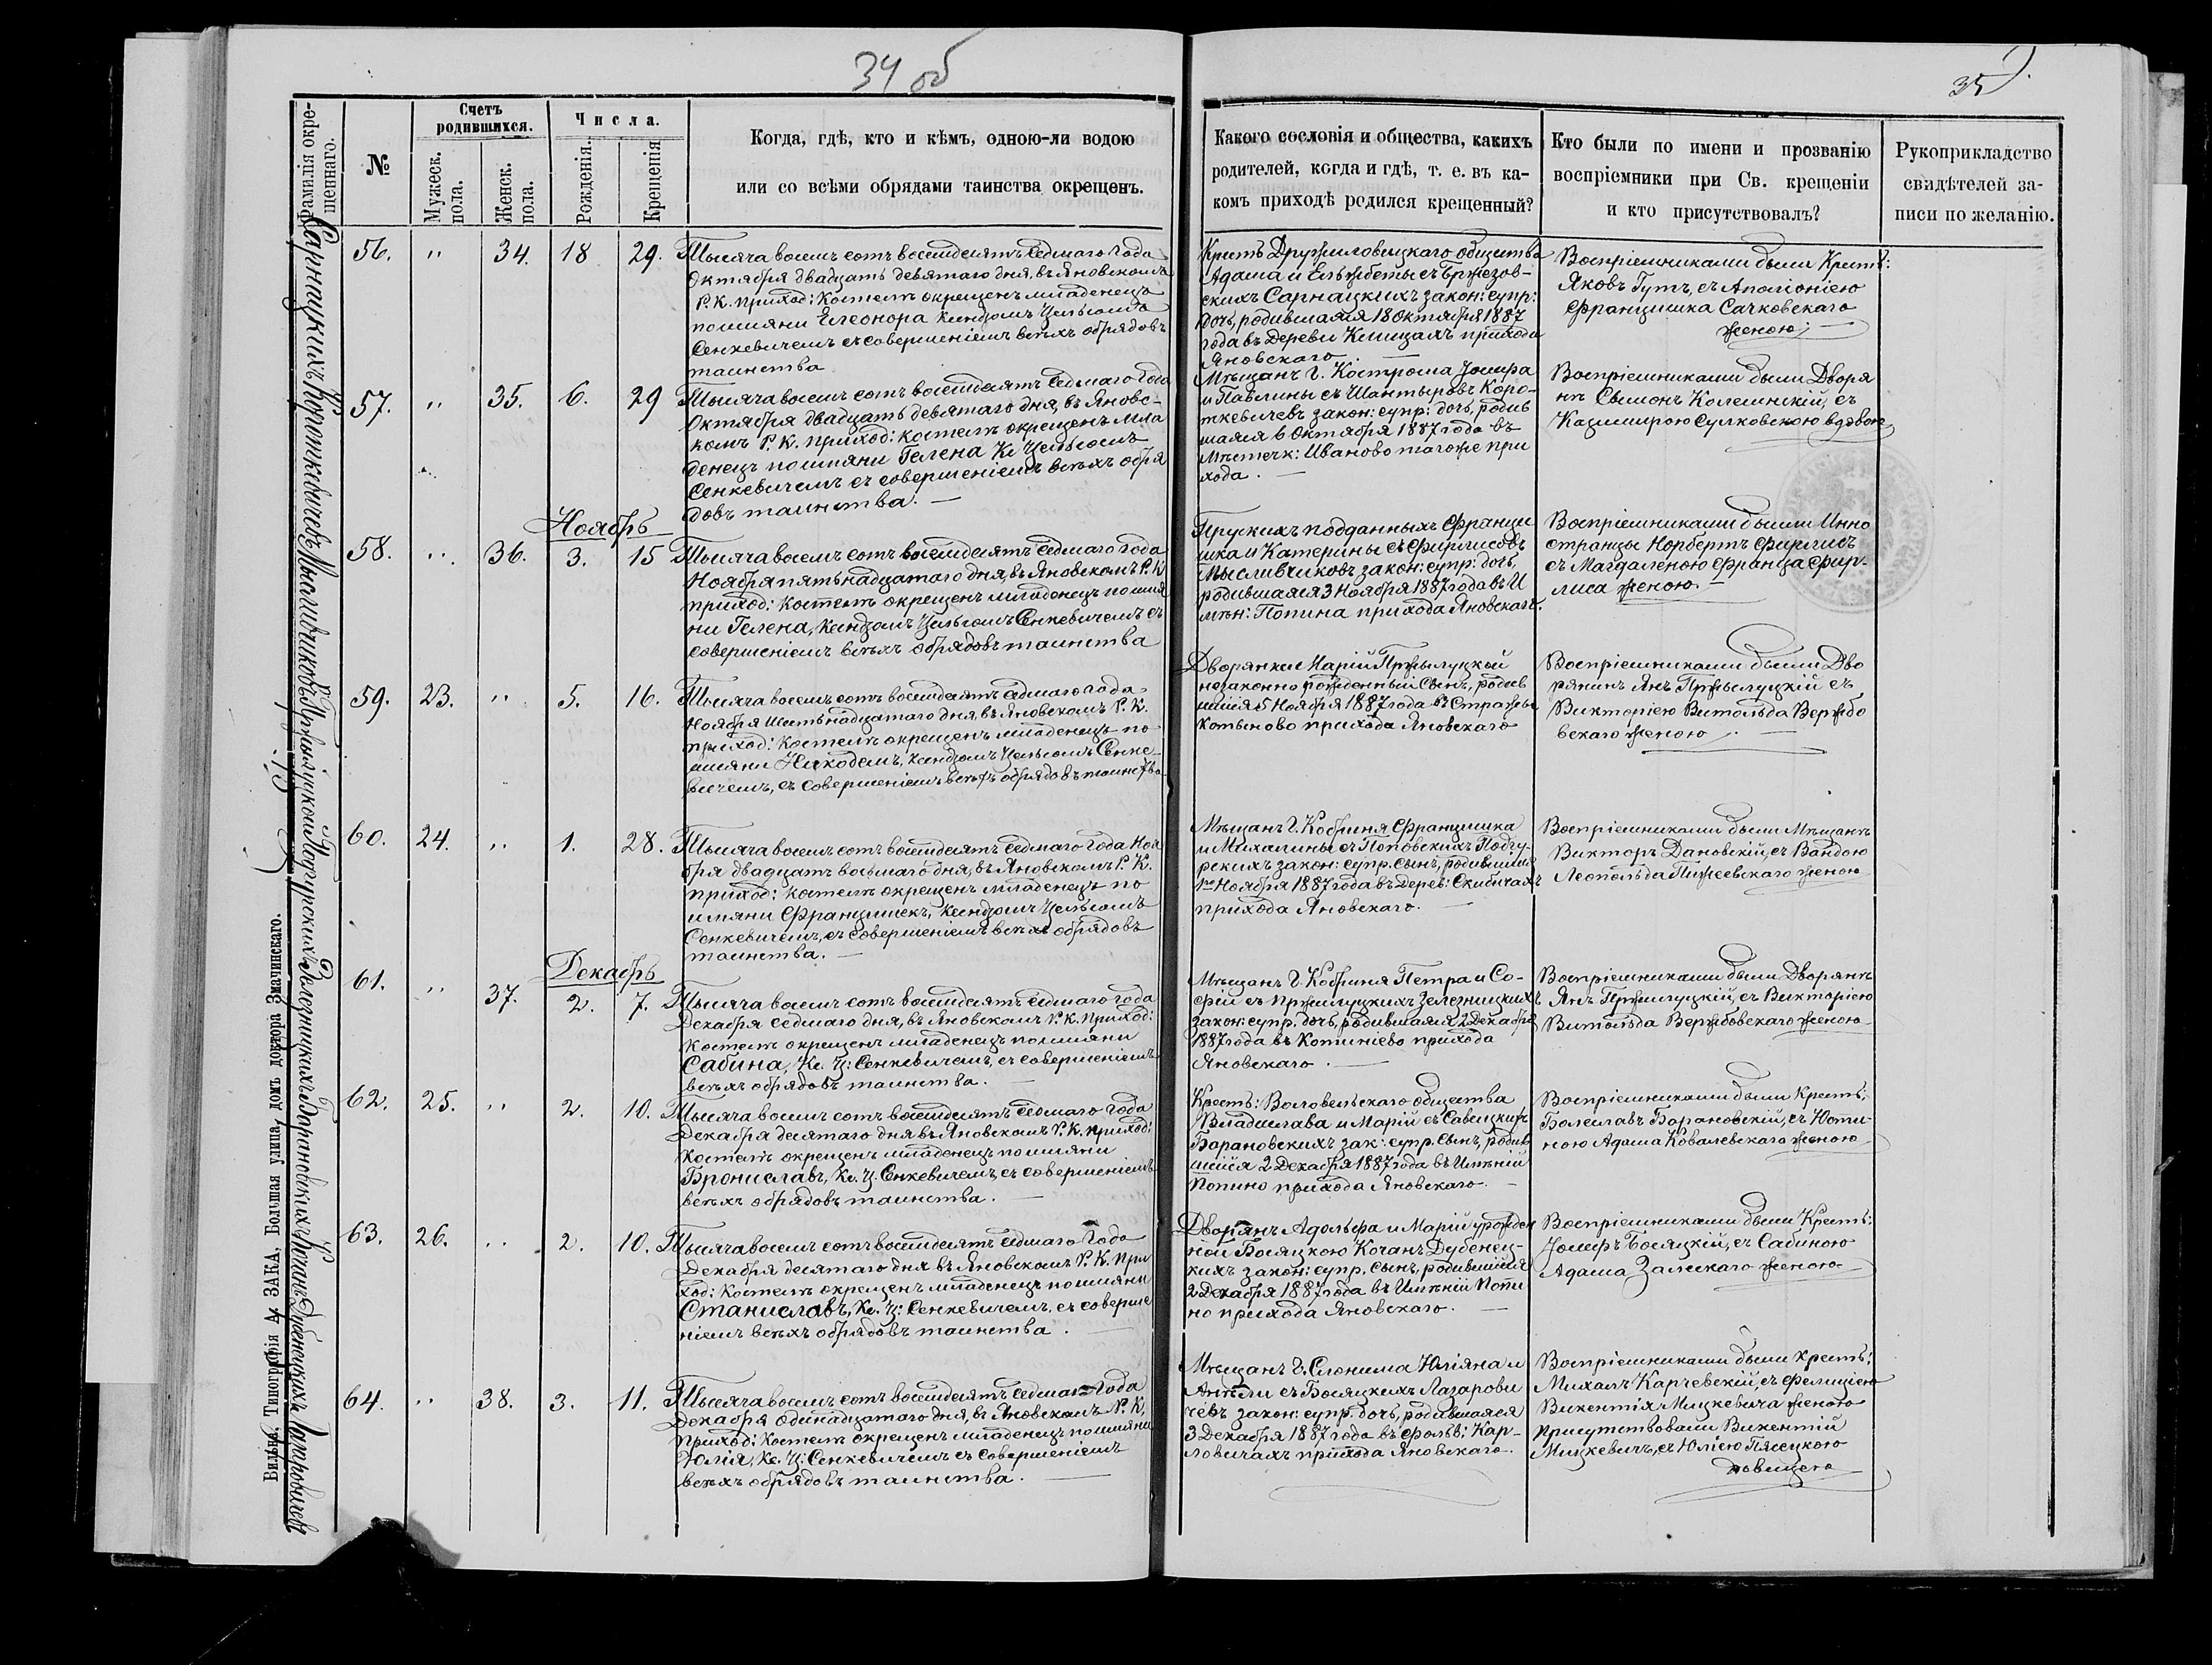 34 об
35
Фамилія окре-
щеннаго.
№
Счетъ
родившихся.
Мужеск.
пола.
Женск.
пола.
Числа.
Рожденія.
Крещенія
Когда, гдѣ, кто и кѣмъ, одною-ли водою
или со всѣми обрядами таинства окрещенъ.
Какого сословія и общества, какихъ
родителей, когда и гдѣ, т. е. въ ка-
комъ приходѣ родился крещенный?
Кто были по имени и прозванію
воспріемники при Св. крещеніи
и кто присутствовалъ?
Рукоприкладство
свидѣтелей за-
писи по желанію.
Сарнацкихъ
56. " 34. 18 29.
Тысяча восемь сотъ восемдесятъ седмаго года
Октября двадцать девятаго дня, въ Яновскомъ
Р. К. приход: костелѣ окрещенъ младенецъ
по имяни Елеонора Ксендзомъ Цельсомъ
Сенкевичемъ съ совершеніемъ всѣхъ обрядовъ
таинства
Крест: Дружиловицкаго общества
Адама и Ельжбеты съ Бржезов-
скихъ Сарнацкихъ закон: супр:
дочь, родившаяся 18 Октября 1887
года въ Деревни Клищахъ прихода
Яновскаго. —
Воспріемниками были Крест:
Яковъ Гутъ, съ Аполіоніею
Францишка Сачковскаго
женою; —
Короткевичевъ
57. " 35. 6. 29
Тысяча восемь сотъ восемдесятъ седмаго года
Октября двадцать девятаго дня, въ Яновс-
комъ Р. К. приход: костелѣ окрещенъ мла
денецъ по имяни Гелена Кс Цельсомъ
Сенкевичемъ съ совершеніемъ всѣхъ обря
довъ таинства. —
Мѣщанъ г. Кострома Іосифа
и Павлины съ Шантыровъ Коро-
ткевичевъ закон: супр: дочь, родив
шаяся 6 Октября 1887 года въ
Мѣстечк: Иваново тагоже при
хода. —
Воспріемниками были Дворя
нѣ Сымонъ Колешнскій, съ
Казимирою Сулковскою вдовою
Ноябрь
Мысливчиковъ
58. " 36. 3. 15
Тысяча восемь сотъ восемдесятъ седмаго года
Ноября пятьнадцатаго дня, въ Яновскомъ Р. К
приход: костелѣ окрещенъ младенецъ по имя
ни Гелена, Ксендзомъ Цельсомъ Сенкевичемъ съ
совершеніемъ всѣхъ обрядовъ таинства
Прускихъ подданныхъ Францы
шка и Катерины съ Фирлисовъ
Мысливчиковъ закон: супр: дочь,
родившаяся 3 Ноября 1887 года въ И
мѣн: Попина прихода Яновскаго.
Воспріемниками были Инно
странцы Норбертъ Фирлисъ
съ Магдаленою Франца Фир-
лиса женою. —
Пржилуцкой
59. 23. " 5. 16.
Тысяча восемь сотъ восемдесятъ седмаго года
Ноября шестьнадцатаго дня, въ Яновскомъ Р. К.
приход: костелѣ окрещенъ младенецъ по
имяни Никодемъ, Ксендзомъ Цельсомъ Сенке-
вичемъ, съ совершеніемъ всѣхъ обрядовъ таинства
Дворянки Марій Пржылуцкой
незаконно рожденный сынъ, родив
шійся 5 Ноября 1887 года въ Стражы
Котыново прихода Яновскаго
Воспріемниками были Дво
рянинъ Янъ Пржылуцкій съ
Викторіею Витольда Вержбо
вскаго женою. —
Подгурскихъ
60. 24. " 1. 28.
Тысяча восемь сотъ восемдесятъ седмаго года Ноя
бря двадцать восьмаго дня, въ Яновскомъ Р. К.
приход: костелѣ окрещенъ младенецъ по
имяни Францишекъ, Ксендзомъ Цельсомъ
Сенкевичемъ, съ совершеніемъ всѣхъ обрядовъ
таинства. —
Мѣщанъ г. Кобриня Францишка
и Михалины съ Поповскихъ Подгу-
рскихъ закон: супр. сынъ, родившійся
1го Ноября 1887 года въ Дерев: Скибичахъ
прихода Яновскаго. —
Воспріемниками были Мѣщанѣ
Викторъ Дановскій, съ Вандою
Леопольда женою
Декабрь
Зелезницкихъ
61. " 37. 2. 7.
Тысяча восемь сотъ восемдесятъ седмаго года
Декабря седмаго дня, въ Яновскомъ Р. К. приход:
костелѣ окрещенъ младенецъ по имяни
Сабина, Кс. Ц: Сенкевичемъ, съ совершеніемъ
всѣхъ обрядовъ таинства. —
Мѣщанъ г. Кобриня Петра и Со-
фіи съ Пржилуцкихъ Зелезницкихъ
закон: супр. дочь, родившаяся 2 Декабря
1887 года въ Котиніево прихода
Яновскаго. —
Воспріемниками были Дворянѣ
Янъ Пржилуцкій, съ Викторіею
Витольда Вержбовскаго женою
Барановскихъ
62. 25. " 2. 10.
Тысяча восемь сотъ восемдесятъ седмаго года
Декабря десятаго дня въ Яновскомъ Р. К. приход:
костелѣ окрещенъ младенецъ по имяни
Брониславъ, Кс. Ц. Сенкевичемъ, съ совершеніемъ
всѣхъ обрядовъ таинства. —
Крест: Воловельскаго общества
Владислава и Марій съ Савицкихъ
Барановскихъ зак: супр. сынъ, родив
шійся 2 Декабря 1887 года въ Имѣній
Попино прихода Яновскаго —
Воспріемниками были Крест:
Болеславъ Барановскій, съ Юсти-
ною Адама Ковалевскаго женою
Кочанъ Дубенецкихъ
63. 26. " 2. 10.
Тысяча восемь сотъ восемдесятъ седмаго года
Декабря десятаго дня въ Яновскомъ Р. К. при
ход: костелѣ окрещенъ младенецъ по имяни
Станиславъ, Кс. Ц: Сенкевичемъ, съ соверше
ніемъ всѣхъ обрядовъ таинства. —
Дворянъ Адольфа и Марій урожден
ной Босяцкою Кочанъ Дубенец-
кихъ закон: супр. сынъ, родившійся
2 Декабря 1887 года въ Имѣній Попи
но прихода Яновскаго. —
Воспріемниками были Крест:
Іосифъ Босяцкій, съ Сабиною
Адама Залескаго женою
Лазаровичевъ
64. " 38. 3. 11.
Тысяча восемь сотъ восемдесятъ седмаго года
Декабря одинадцатаго дня, въ Яновскомъ Р. К.
приход: костелѣ окрещенъ младенецъ по имяни
Юлія, Кс. Ц: Сенкевичемъ съ совершеніемъ
всѣхъ обрядовъ таинства. —
Мѣщанъ г. Слонима Юліяна и
Анѣли съ Босяцкихъ Лазарови
чевъ закон: супр. дочь, родившаяся
3 Декабря 1887 года въ фольв: Кар-
ловичахъ прихода Яновскаго.
Воспріемниками были крест:
Михалъ Карчевскій, съ Фелиціею
Викентія Мицкевича женою
присутствовали Викентій
Мицкевичъ, съ Юліею Пясецкою
дѣвицею
Вильна, Типографія А. ЗАКА, Большая улица, домъ доктора Змачинскаго.